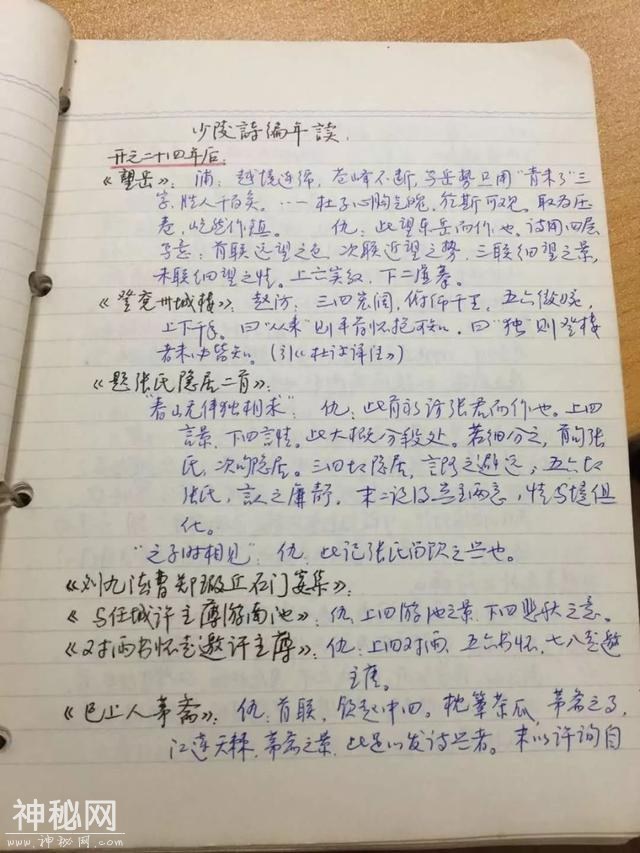 少陵詩編年談.
开元二十四年后:
《望岳》: 浦: 越境连绵, 苍峰不断, 写岳势只用“青未了”三
字, 胜人千百矣. ……杜子心胸气魄, 於斯可观. 取为压
卷, 屹然作镇. 仇: 此望东岳而作也. 诗用四层
写意: 首联远望之色, 次联近望之势, 三联细望之景,
末联极望之情. 上六实叙, 下二虚摹.
《登兖州城楼》: 赵汸: 三四宏阔, 俯仰千里, 五六微婉,
上下千年. 曰“从来”则平昔怀抱可知, 曰“独”则登楼
者未必皆知. (引《杜诗详注》)
《题张氏隐居二首》:
“春山无伴独相求”: 仇: 此首初访张君而作也. 上四
言景, 下四言情. 此大概分段处. 若细分之, 首句张
氏, 次句隐居. 三四切隐居, 言路之幽远; 五六切
张氏, 言人之廉静. 末二说得宾主两忘, 情与境俱
化.
“之子时相见”: 仇: 此记张氏留饮之兴也.
《刘九法曹郑瑕丘石门宴集》:
《与任城许主簿游南池》: 仇: 上四游池之景, 下四悲秋之意.
《对雨书怀走邀许主簿》: 仇: 上四对雨, 五六书怀, 七八走邀
主簿.
《巳上人茅斋》: 仇: 首联, 领起中四. 枕簟茶瓜, 茅斋之事,
江莲天棘, 茅斋之景, 此足以发诗兴者. 末以许询自
神秘网
www.神秘网.com